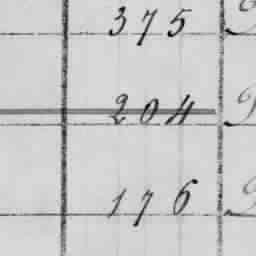 375
204
176